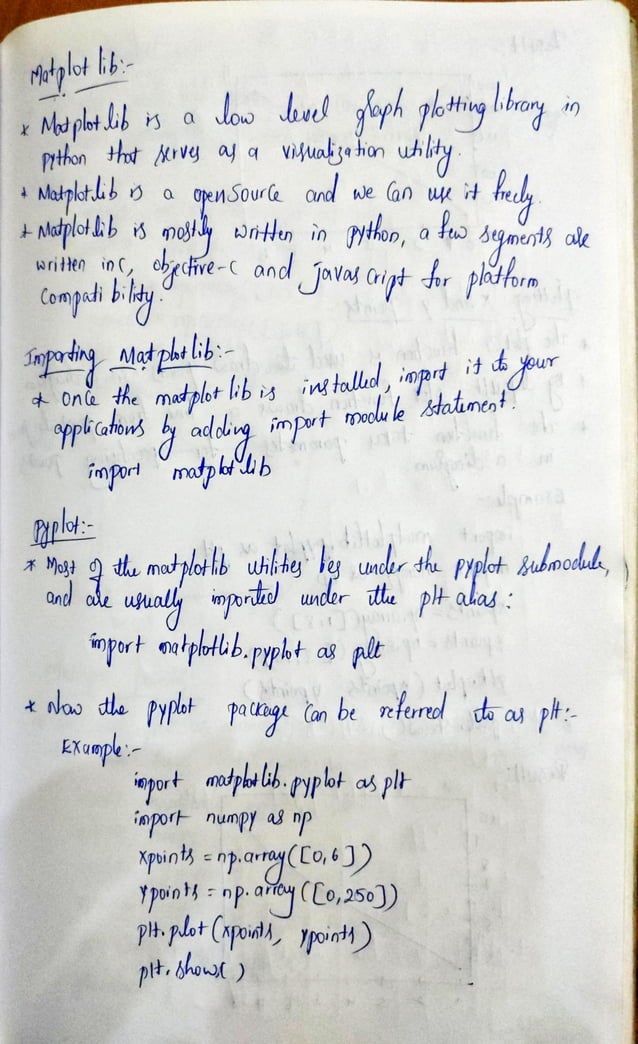 Matplot lib:-
* Matplotlib is a low level graph plotting library in
python that serves as a visualization utility.
* Matplotlib is a open source and we can use it freely.
* Matplotlib is mostly written in python, a few segments are
written in c, objective-c and javascript for platform
Compatibility.
Importing Matplotlib:-
* once the matplotlib is installed, import it to your
applications by adding import module statement.
import matplotlib
Pyplot:-
* Most of the matplotlib utilities lies under the pyplot submodule,
and are usually imported under the plt alias:
import matplotlib.pyplot as plt
* Now the pyplot package can be referred to as plt:-
Example:-
import matplotlib.pyplot as plt
import numpy as np
xpoints = np.array([0,6])
ypoints = np.array([0,250])
plt.plot(xpoints, ypoints)
plt.show()